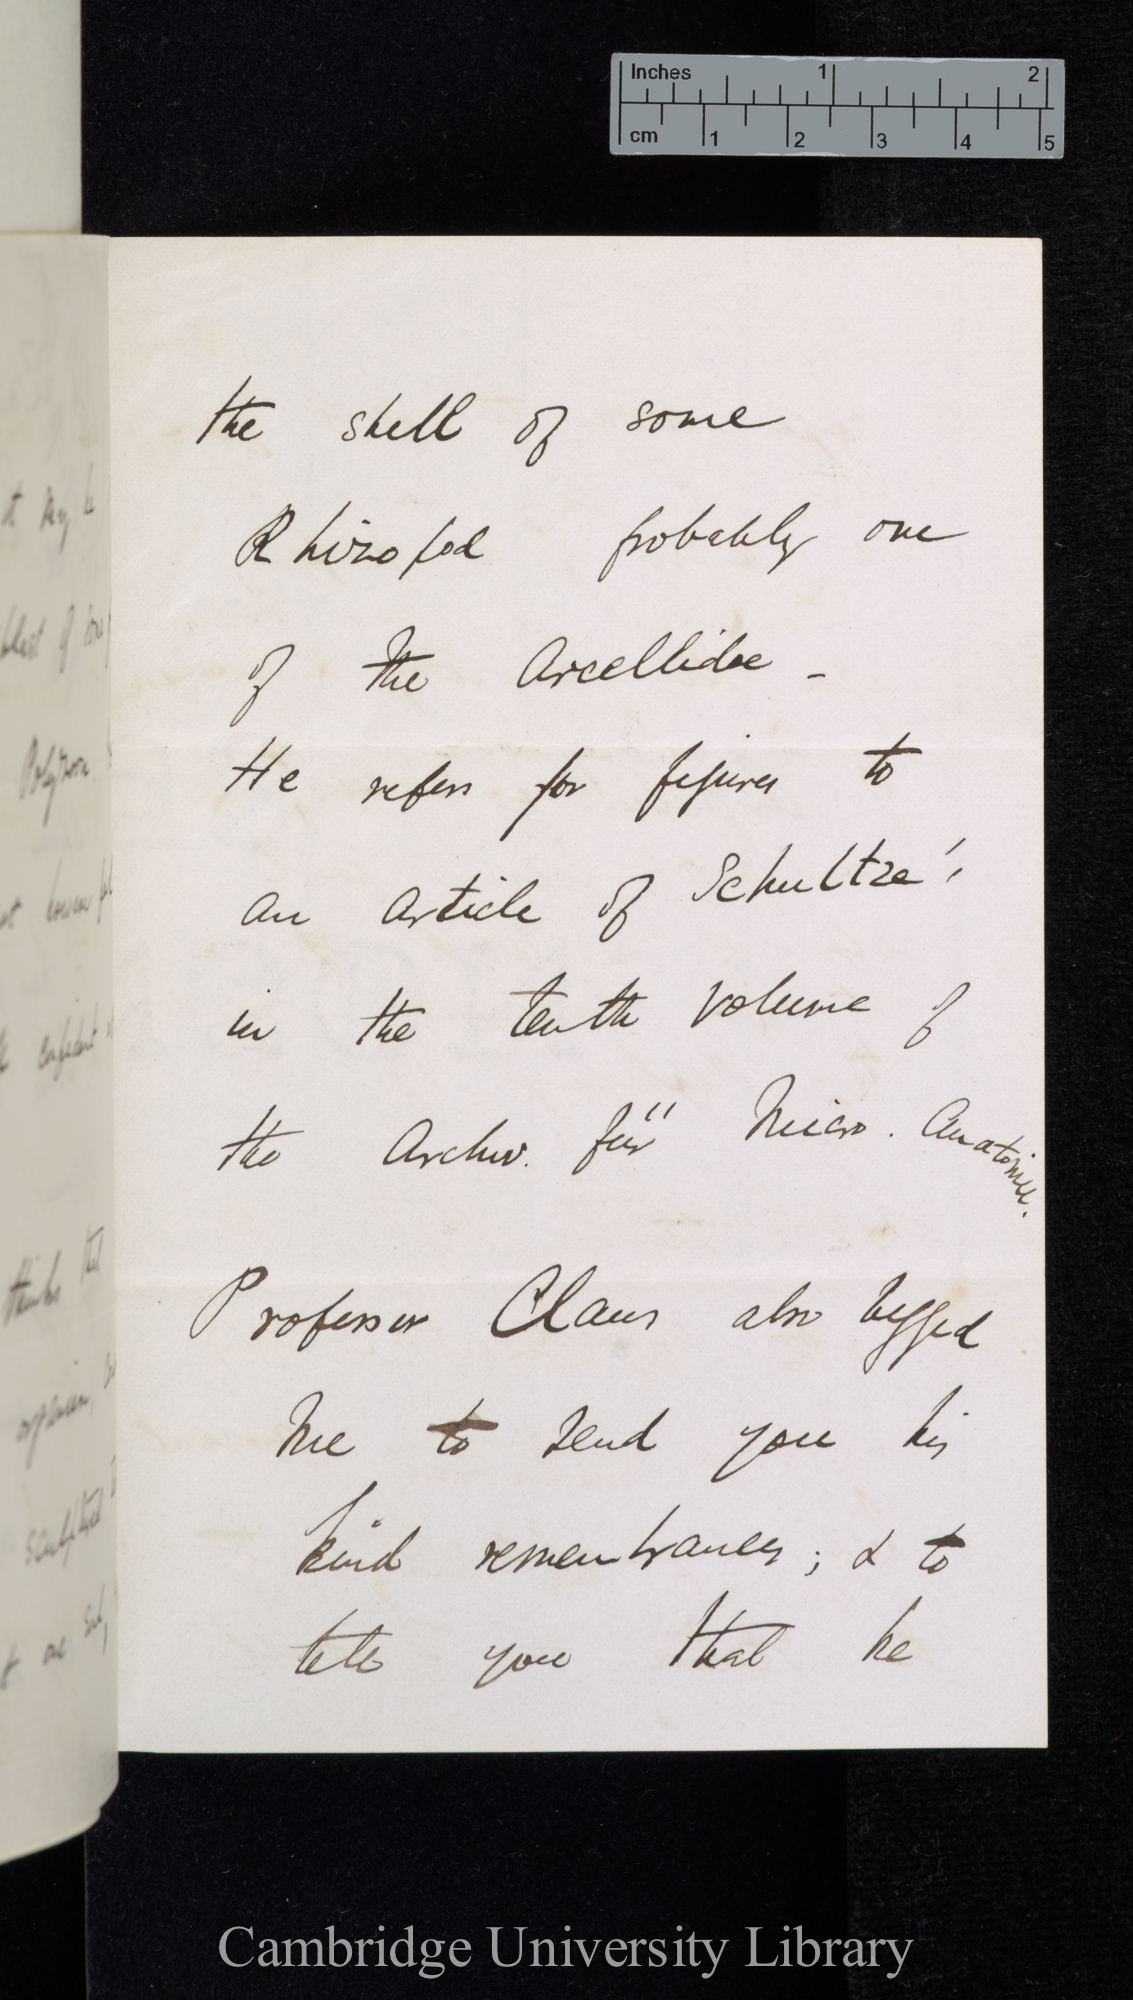 Inches 1 2
cm 1 2 3 4 5
the shell of some
Rhizopod probably one
of the Arcellidae -
He refers for figures to
an article of Schultze's
in the tenth volume of
the Archiv. für Micro. Anatomie.
Professor Claus also begged
me to send you his
kind remembrances; & to
tell you that he
Cambridge University Library